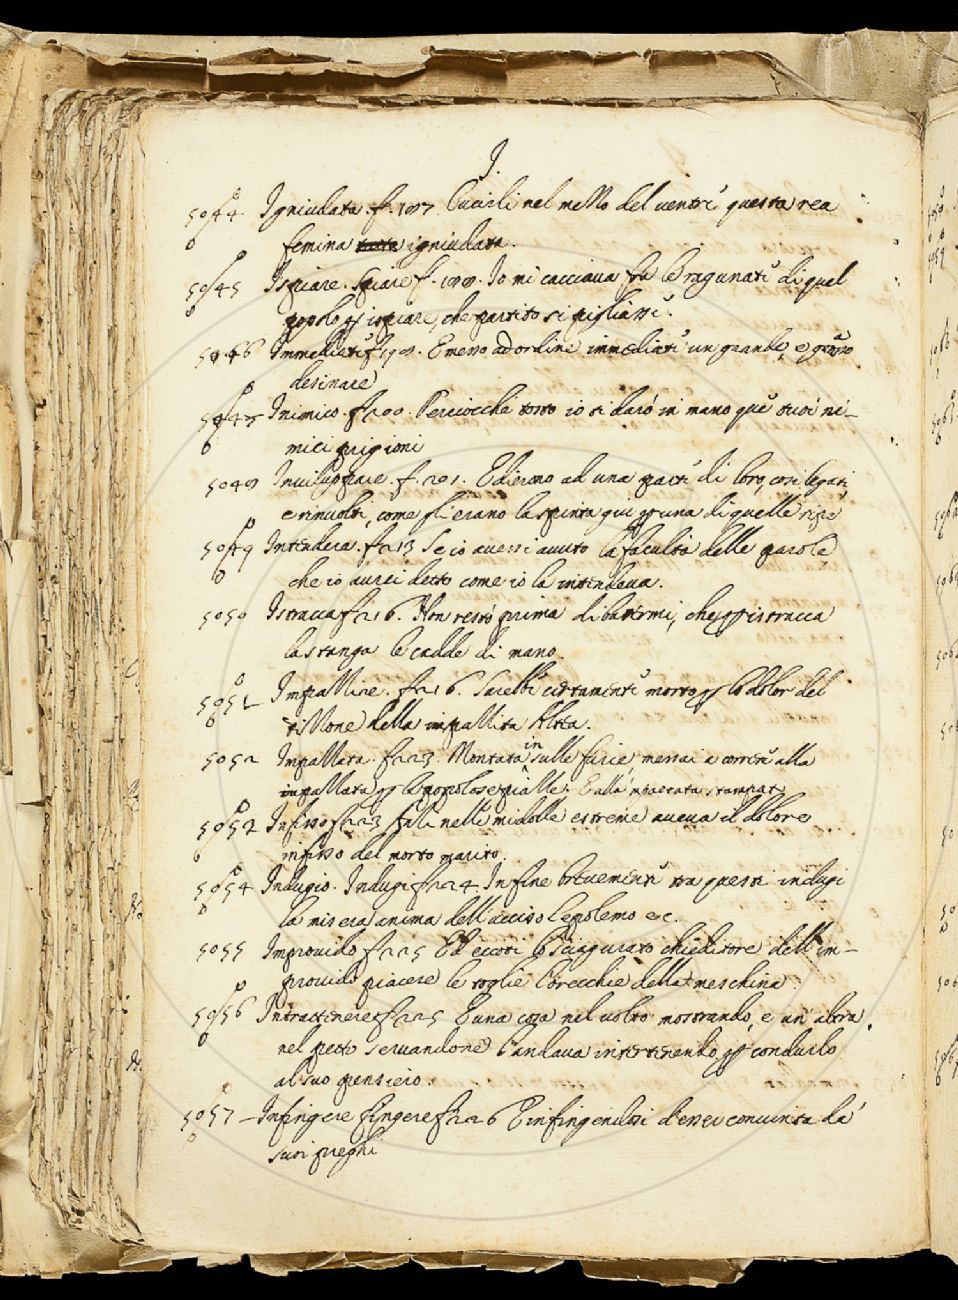 I
5044 Igniudata. f. 197 Cucirli nel mezzo del ventre questa rea
femina igniudata.
5045 Ispiare. Spiare f. 199. Io mi cacciava fra le ragunate di quel
popolo per ispiare, che partito si pigliassi.
5046 Immediate f. 190. E messo ad ordine immediate un grande, e grosso
desinare
Inimico. f. 200. Perciocche tosto io ti darò in mano que tuoi ni-
mici prigioni
Inviluppare. f. 201. E dierono ad una parte di loro, cosi legati,
e rinvolti, come gli erano la spinta giu per una di quelle ripe
5049 Intendere. f. 213 Se io avessi avuto la faculta delle parole
che io aurei detto come io la intendeva.
5050 Istracca f. 216. Non restò prima di battermi, che per istracca
la stanga le cadde di mano
5051 Impallire. f. 216. Sarebbe certamente morto per lo dolor del
tizzone della
5052 f. 223. Montata in sulle furie, messasi a correre alla
per le popolose piazze.
5053 Infisso f. 223 fin nelle midolle estreme aveva il dolore
infisso del morto marito.
5054 Indugio. Indugi f. 224. In fine brevemente tra questi indugi
la misera anima dell'acciso Lepolemo ec.
5055 Improvido f. 225 Ed eccoti lo sciagurato chieditore dell'im-
provido piacere le toglie l'orecchie della meschina
5056 Intrattenere f. 225 E una cosa nel volto mostrando, e un altra
nel petto servandone l'andava intertenendo per condurlo
al suo pensiero.
5057 - Infingere fingere f. 226 E infingendosi d'esser convinta da'
suoi prieghi